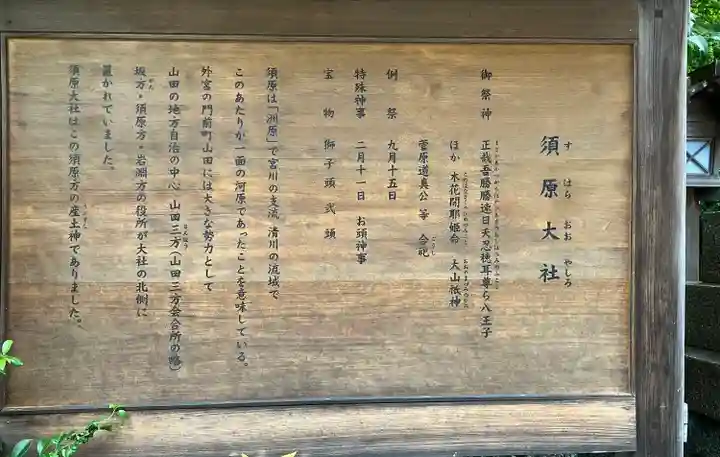 須原大社
すはらおおやしろ
御祭神 正哉吾勝勝速日天忍穂耳尊ら八王子
ほか 木花開耶姫命 大山祇神
菅原道真公 等 合祀
例祭 九月十五日
特殊神事 二月十一日 お頭神事
宝物 獅子頭 弐頭
須原は「洲原」で宮川の支流、清川の流域で
このあたりが一面の河原であったことを意味している。
外宮の門前町山田には大きな勢力として
山田の地方自治の中心、山田三方(山田三方会合所の略)
坂方・須原方・岩淵方の役所が大社の北側に
置かれていました。
須原大社はこの須原方の産土神でありました。